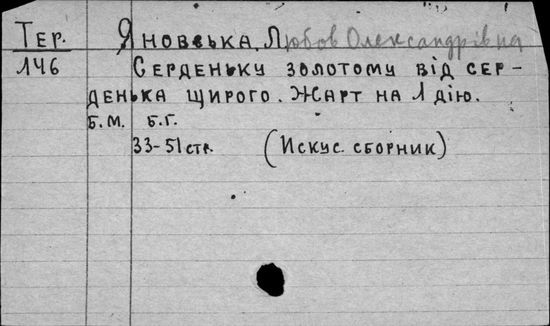 Тер. Яновська, Любов Олександрівна
146 Серденьку золотому від сер-
денька щирого. Жарт на 1 дію.
б.м. б.г.
33-51 стр. (Искус. сборник)